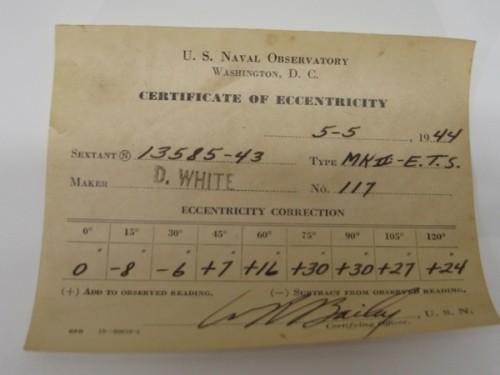 U. S. NAVAL OBSERVATORY
WASHINGTON, D. C.
CERTIFICATE OF ECCENTRICITY
5-5, 1944
SEXTANT Ⓝ 13585-43 TYPE MK II-E.T.S.
MAKER D. WHITE NO. 117
ECCENTRICITY CORRECTION
0° 15° 30° 45° 60° 75° 90° 105° 120°
0 -8 -6 +7 +16 +30 +30 +27 +24
(+) ADD TO OBSERVED READING. (-) SUBTRACT FROM OBSERVED READING.
Bailey, U. S. N.
Certifying Officer.
GPO